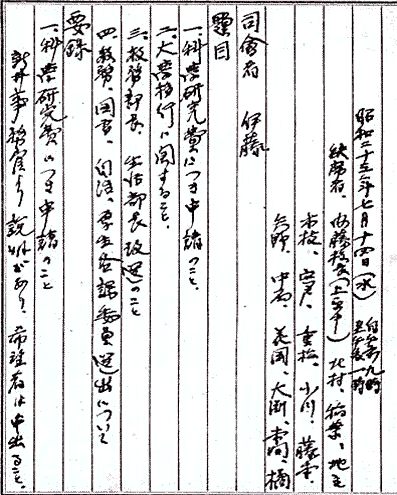 昭和二十三年七月十四日(水) 自午前九時 至午後一時
缺席者、内藤校長(上京中) 北村、稲葉、地主
赤枝、宍戸、重松、小川、藤重、
矢頭、中西、花園、大渕、本間、楠
司会者 伊藤
題目
一、科学研究費につき申請のこと、
二、大学移行に関すること、
三、教務部長、生活部長改選のこと
四、教務、図書、自治、厚生各課委員選出について
要録
一、科学研究費につき申請のこと
新井事務官より説明があり、希望者は申出ること、